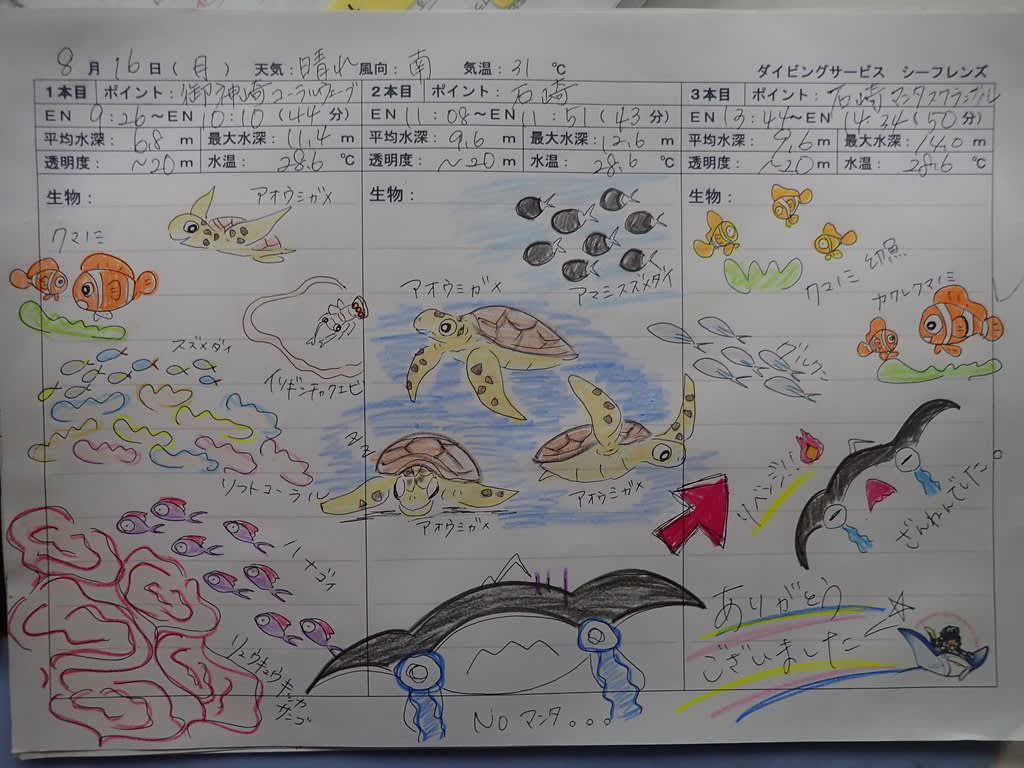 8月16日(月) 天気:晴れ 風向:南 気温:31℃
ダイビングサービス シーフレンズ
1本目 ポイント:御神崎コーラルウェーブ
EN 9:26~EN 10:10(44分)
平均水深:6.8 m 最大水深:11.4 m
透明度:~20 m 水温:28.6 ℃
生物:
アオウミガメ
クマノミ
イソギンチャクエビ
スズメダイ
ソフトコーラル
ハナゴイ
リュウキュウキッカサンゴ
2本目 ポイント:石崎
EN 11:08~EN 11:51(43分)
平均水深:9.6 m 最大水深:12.6 m
透明度:~20 m 水温:28.6 ℃
生物:
アマミスズメダイ
アオウミガメ
zzz
アオウミガメ
アオウミガメ
NOマンタ。。。
3本目 ポイント:石崎マンタスクランブル
EN 13:44~EN 14:24(50分)
平均水深:9.6 m 最大水深:14.0 m
透明度:~20 m 水温:28.6 ℃
生物:
クマノミ幼魚
カクレクマノミ
グルクン
リベンジ!!
ざんねんでした
ありがとう
ございました